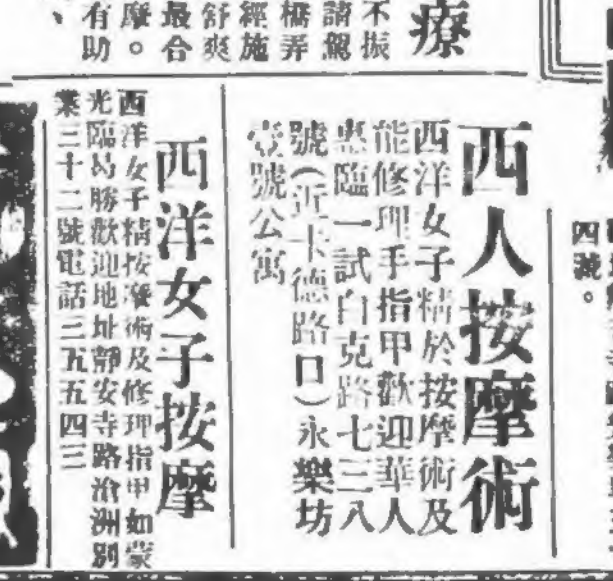 療
不振
請駕
橋弄
經施
舒爽
最合
摩。
有助
、
四號。
西人按摩術
西洋女子精於按摩術及
能修理手指甲歡迎華人
惠臨一試白克路七三八
號(近卡德路口)永樂坊
壹號公寓
西洋女子按摩
西洋女子精按摩術及修理指甲如蒙
光臨曷勝歡迎地址靜安寺路滄洲別
業三十二號電話三五五四三